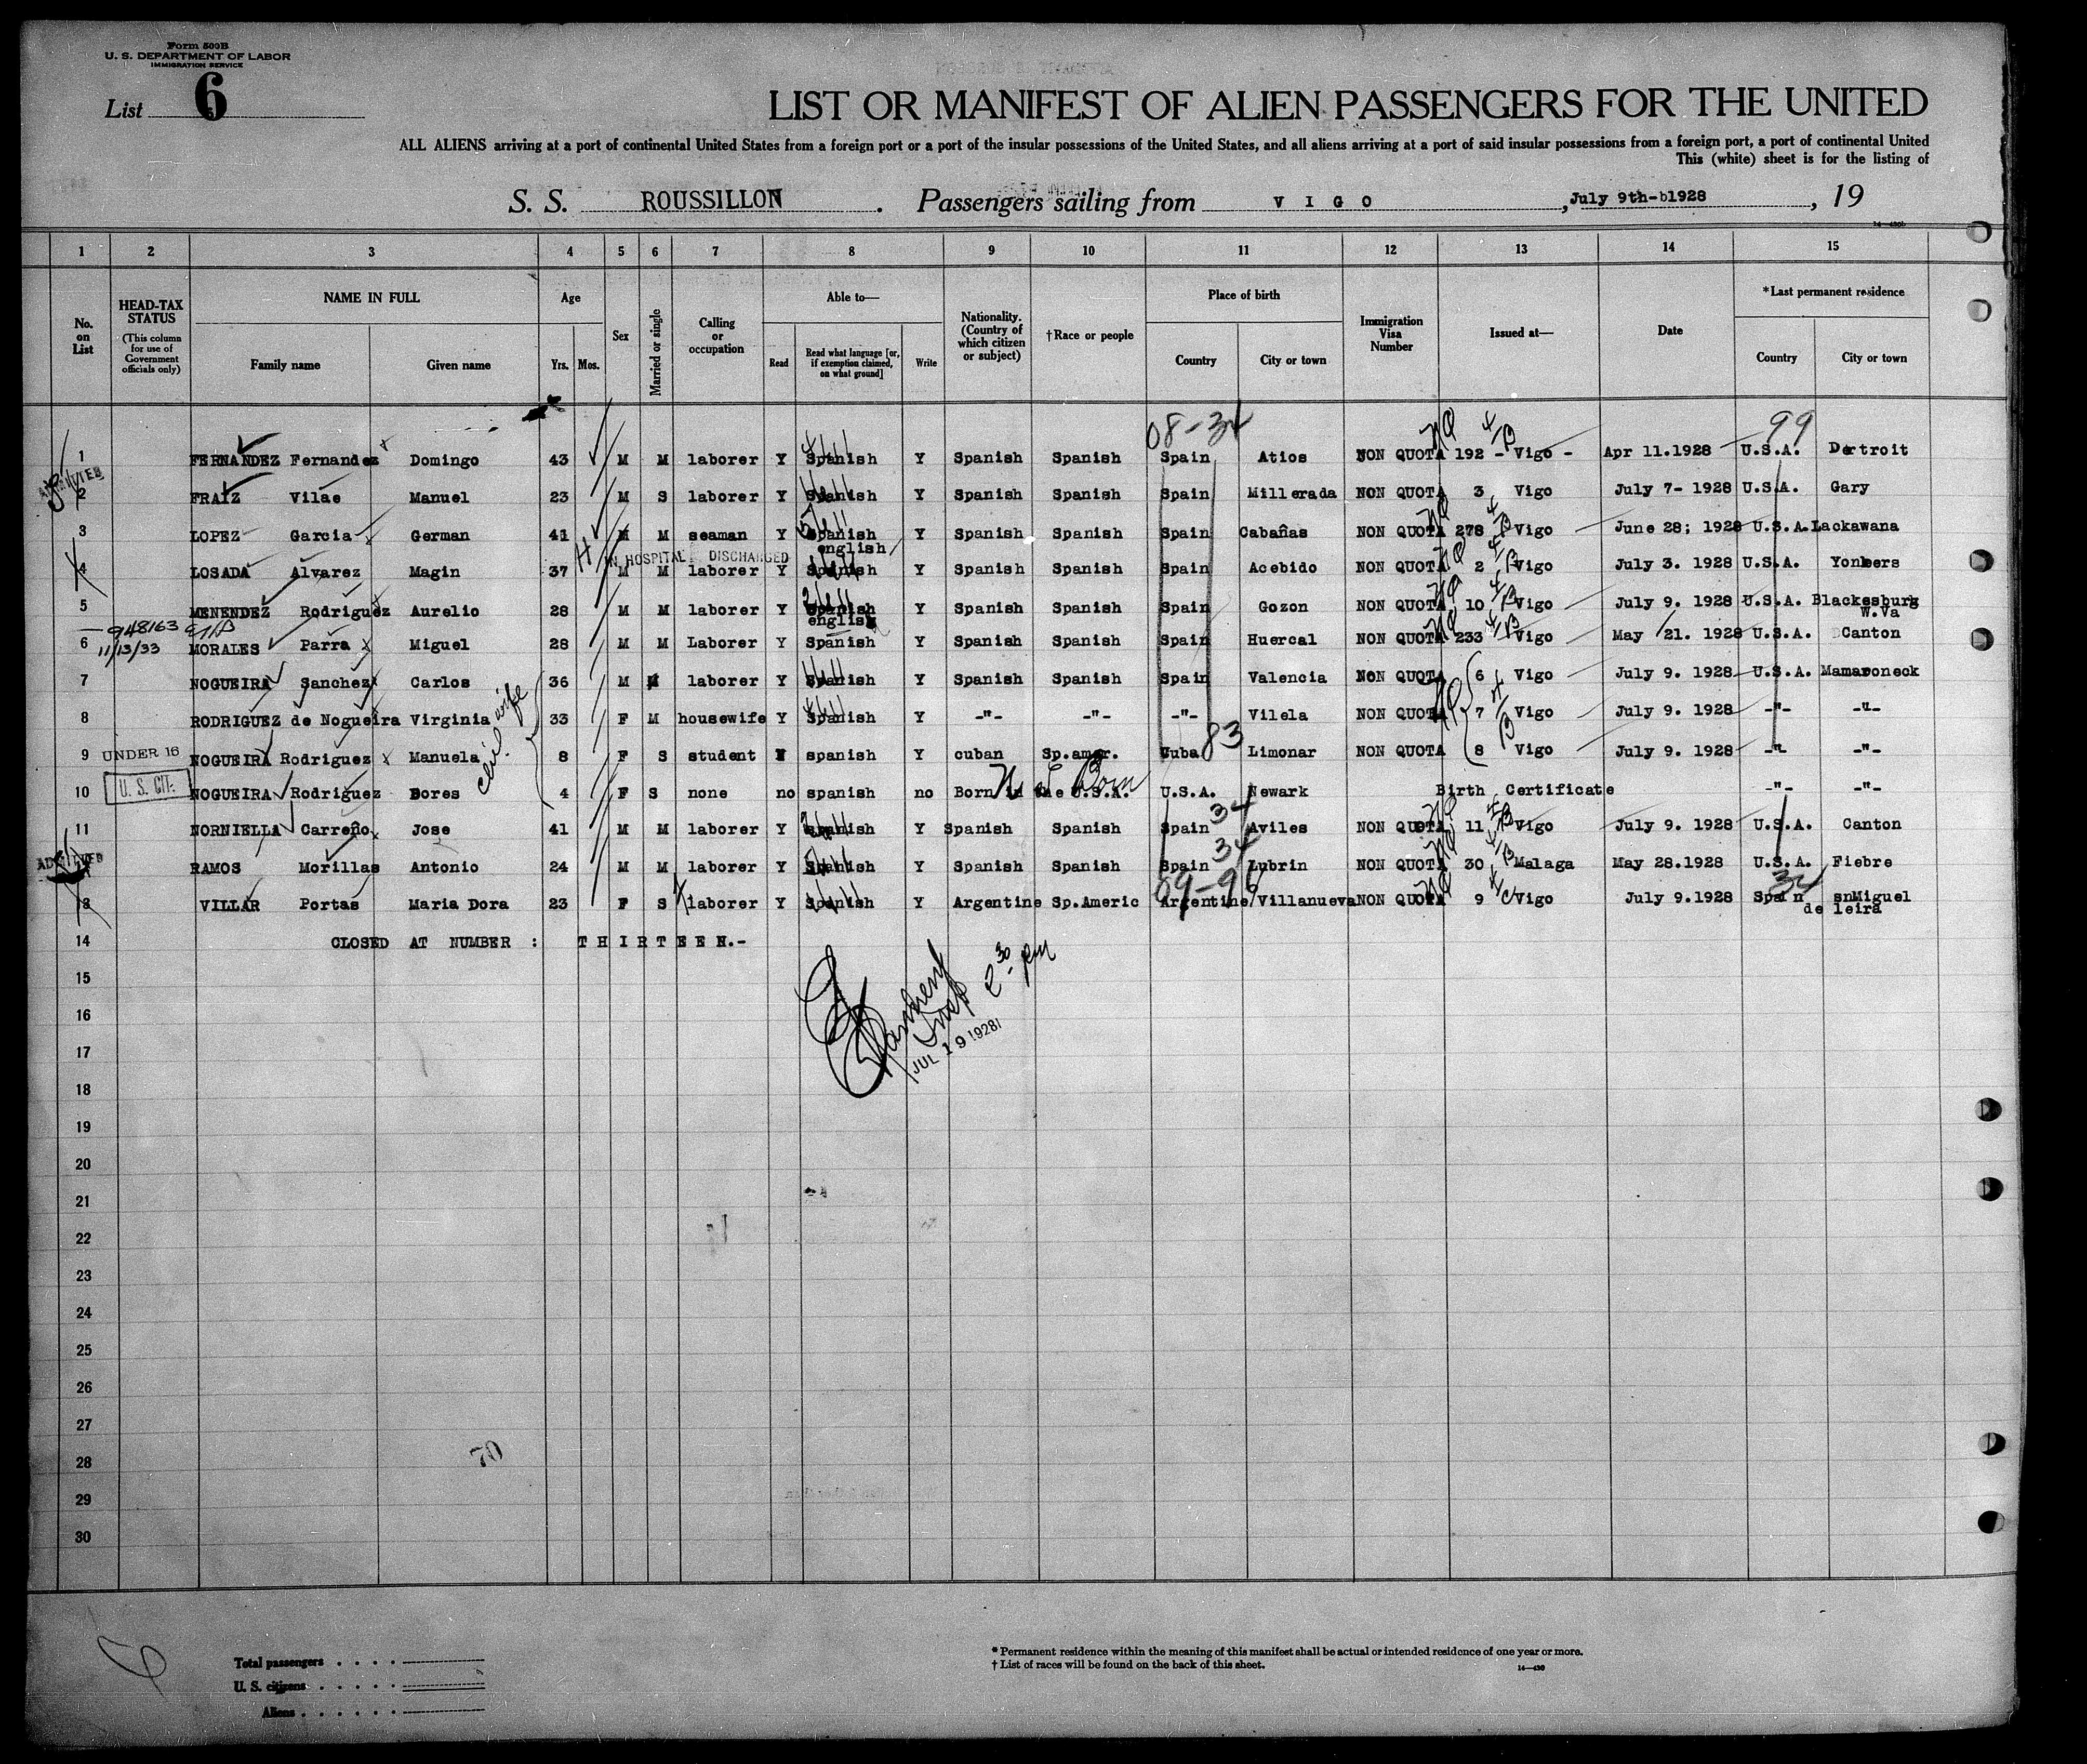 Form 500B
U. S. DEPARTMENT OF LABOR
IMMIGRATION SERVICE
List 6
LIST OR MANIFEST OF ALIEN PASSENGERS FOR THE UNITED
ALL ALIENS arriving at a port of continental United States from a foreign port or a port of the insular possessions of the United States, and all aliens arriving at a port of said insular possessions from a foreign port, a port of continental United
This (white) sheet is for the listing of
S. S. ROUSSILLON . Passengers sailing from V I G O , July 9th-b1928 , 19
1 2 3 4 5 6 7 8 9 10 11 12 13 14 15
No. on List
HEAD-TAX STATUS (This column for use of Government officials only)
NAME IN FULL
Family name Given name
Age
Yrs. Mos.
Sex
Married or single
Calling or occupation
Able to—
Read
Read what language [or, if exemption claimed, on what ground]
Write
Nationality. (Country of which citizen or subject)
†Race or people
Place of birth
Country City or town
Immigration Visa Number
Issued at—
Date
*Last permanent residence
Country City or town
08-34 99
1 FERNANDEZ Fernandez Domingo 43 M M laborer Y Spanish Y Spanish Spanish Spain Atios NON QUOTA 192 - Vigo - Apr 11.1928 U.S.A. Detroit
ADMITTED
2 FRAIZ Vilae Manuel 23 M S laborer Y Spanish Y Spanish Spanish Spain Millerada NON QUOTA 3 Vigo July 7- 1928 U.S.A. Gary
3 LOPEZ Garcia German 41 M M seaman Y Spanish Y Spanish Spanish Spain Cabañas NON QUOTA 278 Vigo June 28; 1928 U.S.A. Lackawana
english
IN HOSPITAL DISCHARGED
4 LOSADA Alvarez Magin 37 M M laborer Y Spanish Y Spanish Spanish Spain Acebido NON QUOTA 2 Vigo July 3. 1928 U.S.A. Yonkers
5 MENENDEZ Rodriguez Aurelio 28 M M laborer Y Spanish Y Spanish Spanish Spain Gozon NON QUOTA 10 Vigo July 9. 1928 U.S.A. Blackesburg
english W.Va
948163
11/13/33
6 MORALES Parra Miguel 28 M M Laborer Y Spanish Y Spanish Spanish Spain Huercal NON QUOTA 233 Vigo May 21. 1928 U.S.A. Canton
7 NOGUEIRA Sanchez Carlos 36 M M laborer Y Spanish Y Spanish Spanish Spain Valencia NON QUOTA 6 Vigo July 9. 1928 U.S.A. Mamaroneck
wife
8 RODRIGUEZ de Nogueira Virginia 33 F M housewife Y Spanish Y -"- -"- -"- Vilela NON QUOTA 7 Vigo July 9. 1928 -"- -"-
83
9 UNDER 16 NOGUEIRA Rodriguez Manuela 8 F S student spanish Y cuban Sp.amer. Cuba Limonar NON QUOTA 8 Vigo July 9. 1928 -"- -"-
10 U. S. CIT. NOGUEIRA Rodriguez Dores 4 F S none no spanish no Born in the U.S.A. U.S.A. Newark Birth Certificate -"- -"-
34
11 NORNIELLA Carreño Jose 41 M M laborer Y Spanish Y Spanish Spanish Spain Aviles NON QUOTA 11 Vigo July 9. 1928 U.S.A. Canton
34
ADMITTED RAMOS Morillas Antonio 24 M M laborer Y Spanish Y Spanish Spanish Spain Lubrin NON QUOTA 30 Malaga May 28.1928 U.S.A. Fiebre
34
VILLAR Portas Maria Dora 23 F S laborer Y Spanish Y Argentine Sp.Americ Argentine Villanueva NON QUOTA 9 Vigo July 9.1928 Spain snMiguel
de leira
14 CLOSED AT NUMBER : T H I R T E E N.-
2 30 pm
15
JUL 19 1928
16
17
18
19
20
21
22
23
24
25
26
27
28
70
29
30
6
Total passengers
U. S. citizens
Aliens
* Permanent residence within the meaning of this manifest shall be actual or intended residence of one year or more.
† List of races will be found on the back of this sheet.
14—430